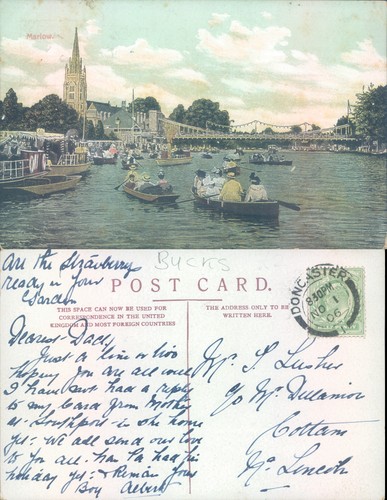 Marlow.
are the Strawberry
ready in your
Garden
BUCKS
POST CARD.
THIS SPACE CAN NOW BE USED FOR
CORRESPONDENCE IN THE UNITED
KINGDOM AND MOST FOREIGN COUNTRIES
THE ADDRESS ONLY TO BE
WRITTEN HERE.
DONCASTER
8.30PM
1
06
Dearest Dad,
Just a line or two
hoping you are all well
I have not had a reply
to my Card from Mother
at Southport is she home
yet. We all send our love
to you all. has Pa had his
holiday yet. Remain Your
Boy Albert
Mr S Lusher
c/o Mr Dulamor
Cottam
Nr Lincoln